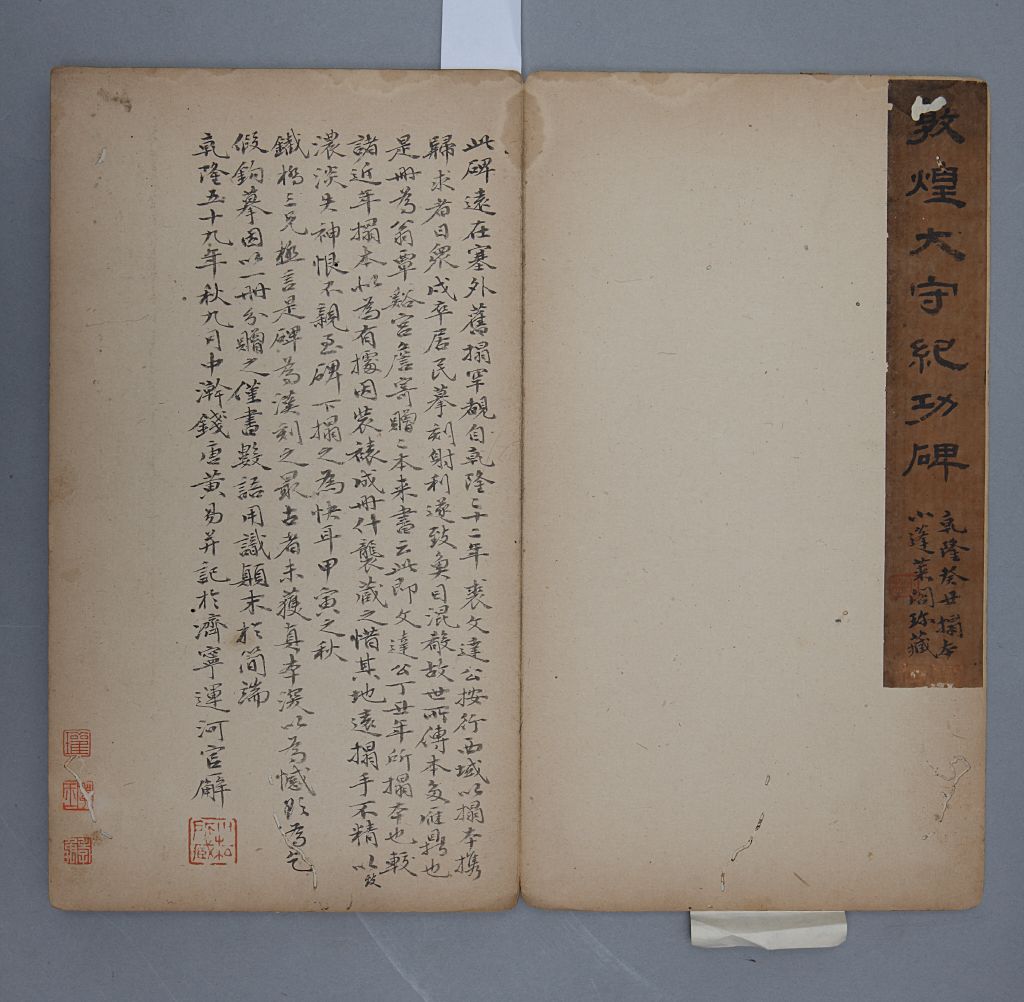 敦煌太守紀功碑
乾隆癸丑搨本
小蓬萊閣珍藏
此碑遠在塞外舊搨罕覩自乾隆二十二年裘文達公按行西域以搨本攜
歸求者日衆戍卒居民摹刻射利遂致魚目混殽故世所傳本多雁鼎也
是冊為翁覃谿宮詹寄贈二本来書云此即文達公丁丑年所搨本也較
諸近年搨本以為有據因裝褾成冊什襲藏之惜其地遠搨手不精以致
濃淡失神恨不親至碑下搨之為快耳甲寅之秋
鐵橋三兄極言是碑為漢刻之最古者未獲真本深以為憾欲為乞
假鉤摹因以一冊分贈之僅書數語用識顛末於簡端
乾隆五十九年秋九月中澣錢唐黃易并記於濟寧運河官廨